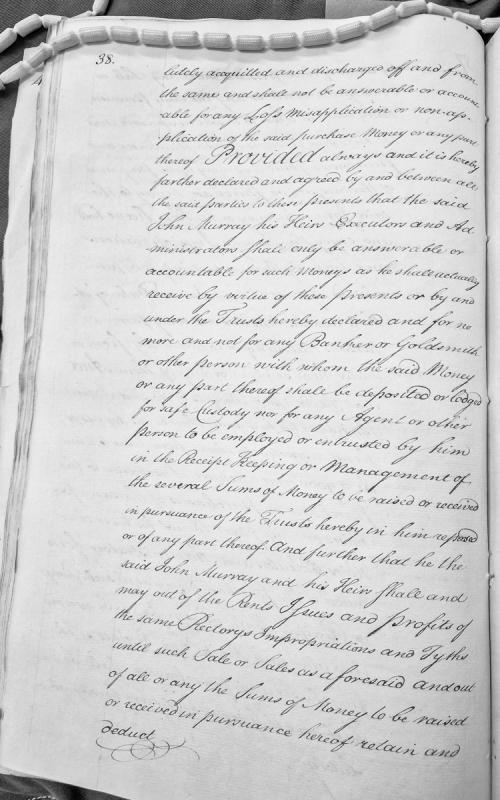 38.
lutely acquitted and discharged off and from
the same and shall not be answerable or account-
able for any Loss misapplication or non-ap-
plication of the said purchase Money or any part
thereof Provided always and it is hereby
farther declared and agreed by and between all
the said parties to these presents that the said
John Murray his Heirs Executors and Ad-
ministrators shall only be answerable or
accountable for such Moneys as he shall actually
receive by virtue of these presents or by and
under the Trusts hereby declared and for no
more and not for any Banker or Goldsmith
or other person with whom the said Money
or any part thereof shall be deposited or lodged
for safe Custody nor for any Agent or other
person to be employed or entrusted by him
in the Receipt Keeping or Management of
the several Sums of Money to be raised or received
in pursuance of the Trusts hereby in him reposed
or of any part thereof. And further that he the
said John Murray and his Heirs shall and
may out of the Rents Issues and profits of
the same Rectorys Impropriations and Tyths
until such Sale or Sales as aforesaid and out
of all or any the Sums of Money to be raised
or received in pursuance hereof retain and
deduct